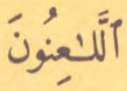 ٱللَّـٰعِنُونَ